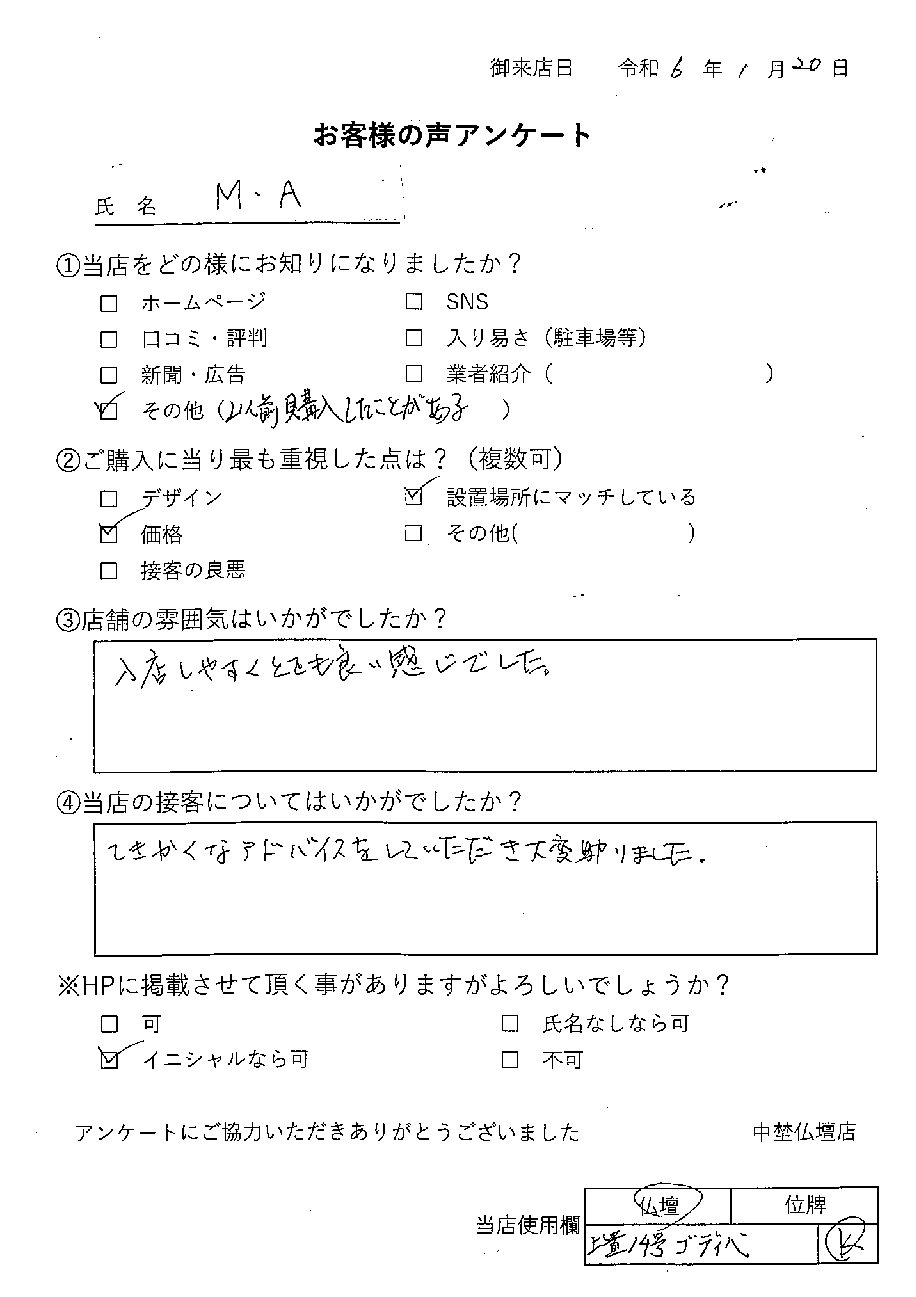 御来店日 令和 6 年 1 月 20 日
お客様の声アンケート
氏 名 M・A
①当店をどの様にお知りになりましたか？
□ ホームページ □ SNS
□ 口コミ・評判 □ 入り易さ（駐車場等）
□ 新聞・広告 □ 業者紹介（ ）
☑ その他（以前購入したことがある ）
②ご購入に当り最も重視した点は？（複数可）
□ デザイン ☑ 設置場所にマッチしている
☑ 価格 □ その他( )
□ 接客の良悪
③店舗の雰囲気はいかがでしたか？
入店しやすくとても良い感じでした。
④当店の接客についてはいかがでしたか？
てきかくなアドバイスをしていただき大変助りました.
※HPに掲載させて頂く事がありますがよろしいでしょうか？
□ 可 □ 氏名なしなら可
☑ イニシャルなら可 □ 不可
アンケートにご協力いただきありがとうございました 中埜仏壇店
当店使用欄 仏壇 位牌
上置14号 ゴディバ